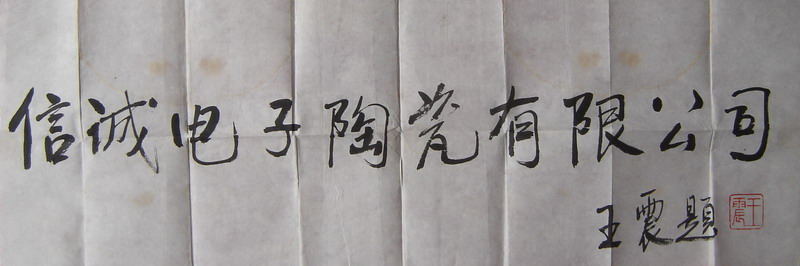 信诚电子陶瓷有限公司
王震題
王震